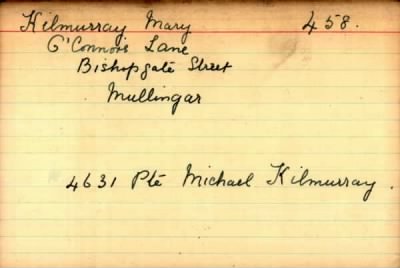 Kilmurray Mary 458.
O'Connors Lane
Bishopgate Street
Mullingar
4631 Pte Michael Kilmurray.